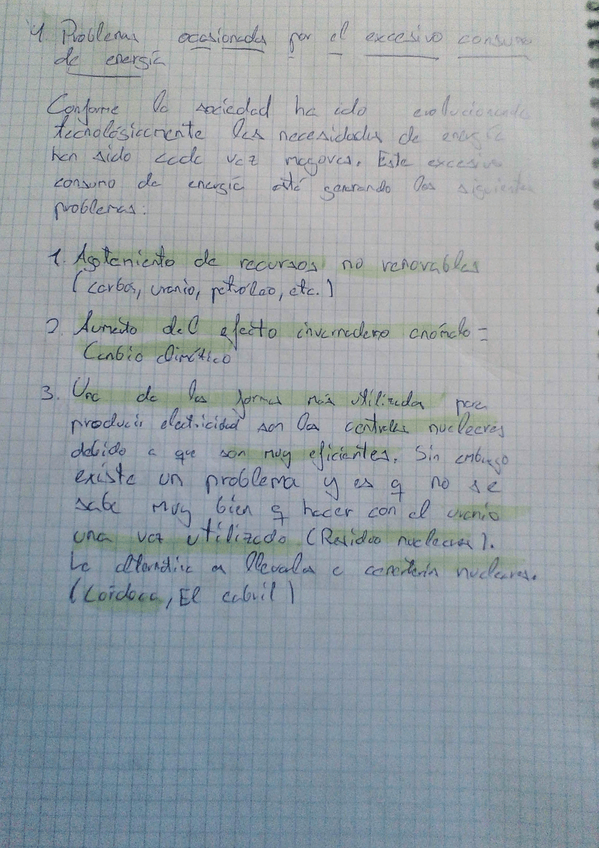 4. Problemas ocasionados por el excesivo consumo
de energía
Conforme la sociedad ha ido evolucionando
tecnológicamente las necesidades de energía
han sido cada vez mayores. Este excesivo
consumo de energía está generando los siguientes
problemas:
1. Agotamiento de recursos no renovables
(carbon, uranio, petróleo, etc.)
2. Aumento del efecto invernadero anómalo =
Cambio climático
3. Una de las formas más utilizada para
producir electricidad son las centrales nucleares
debido a que son muy eficientes. Sin embargo
existe un problema y es q no se
sabe muy bien q hacer con el uranio
una vez utilizado (Residuo nuclear).
La alternativa es llevarlos a cementerios nucleares.
(Cordoba, El cabril)